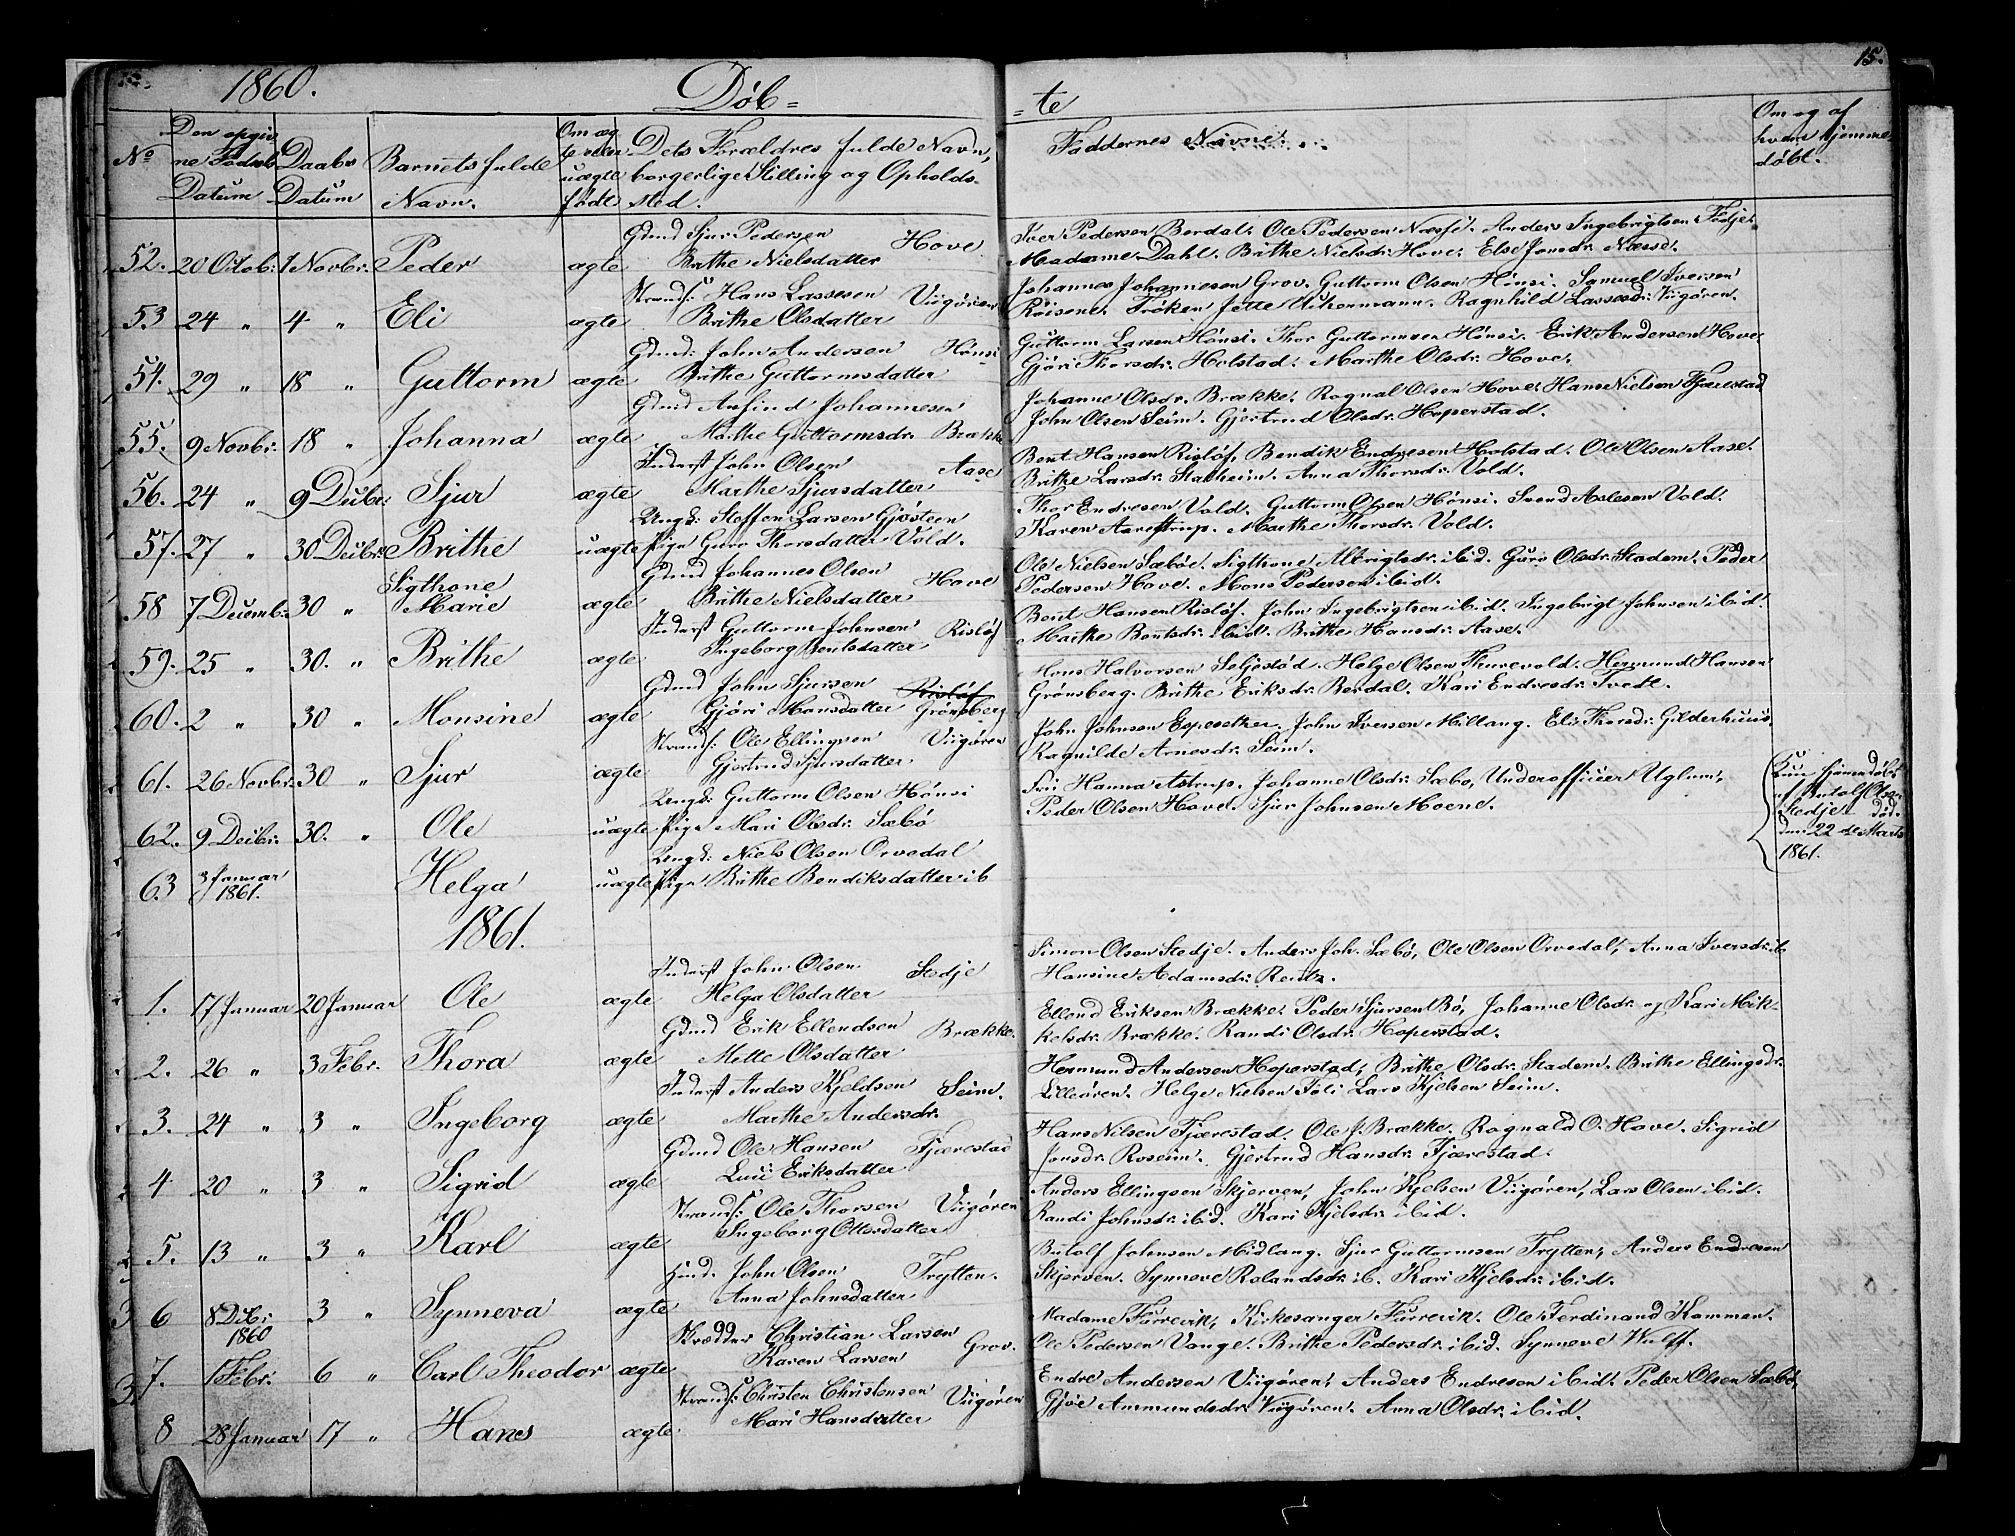 15.
1860.
Døb=
=te
No
Den opgiv
ne Fødsels
Datum
Daabs
Datum
Barnets fulde
Navn.
Om æg
te eller
uægte
født
Dets Forældres fulde Navn,
borgerlige Stilling og Opholds-
sted.
Faddernes Navne.
Om og af
hvem hjemme
døbt.
52. 20 Octob: 1 Novbr: Peder ægte
Gdmd Sjur Pedersen Hove
Brithe Nielsdatter
Iver Pedersen Berdal. Ole Pedersen Næsse. Anders Ingebrigtsen Fedje.
Madame Dahl. Brithe Nielsdr: Hove. Else Jonsdr: Næsse.
53 24 " 4 " Eli ægte
Strands: Hans Lassesen Viigøren
Brithe Olsdatter
Johannes Johannesen Grov. Guttorm Olsen Hønsi. Samuel Iversen
Røisene. Frøken Jette Uchermann. Ragnhild Lassesdr: Viigøren.
54. 29 " 18 " Guttorm ægte
Gdmd: John Andersen Hønsi
Brithe Guttormsdatter
Guttorm Larsen Hønsi. Thor Guttormsen Hønsi. Erik Andersen Hove.
Gjøri Thorsdr: Holstad. Marthe Olsdr: Hove.
55. 9 Novbr: 18 " Johanna ægte
Gdmd Anfind Johannesen
Marthe Guttormsdr: Brække
Johanne Olsdr: Brække. Rognal Olsen Hove. Hans Nielsen Fjærestad
John Olsen Seim. Gjertrud Olsdr: Hoperstad.
56. 24 " 9 Decbr: Sjur ægte
Inderst John Olsen Aase
Marthe Sjursdatter
Bent Hansen Risløf. Bendik Endresen Holstad. Ole Olsen Aase.
Brithe Larsdr: Stadheim. Anna Thorsdr: Vold.
57. 27 " 30 Decbr: Brithe uægte
Ungk: Steffen Larsen Gjösteen
Pige Guro Thorsdatter Vold.
Thor Endresen Vold. Guttorm Olsen Hønsi. Svend Aslesen Vold.
Karen Aarestrup. Marthe Thorsdr: Vold.
58 7 Decemb: 30 " Sigthone
Marie ægte
Gdmd Johannes Olsen Hove
Brithe Nielsdatter
Ole Nielsen Sæbøe. Sigthone Albrigtsdr: ibid. Guro Olsdr: Stadem. Peder
Pedersen Hove. Mons Pedersen ibid.
59. 25 " 30. " Brithe ægte
Inderst Guttorm Johnsen Risløf
Ingeborg Bentsdatter
Bent Hansen Risløf. John Ingebrigtsen ibid. Ingebrigt Johnsen ibid.
Marthe Bentsdr: ibid. Brithe Hansdr: Aase.
60. 2 " 30 " Monsine ægte
Gdmd John Sjursen Risløf
Gjøri Monsdatter Grønsberg
Mons Halvorsen Seljestød. Helge Olsen Thurevold. Hermund Hansen
Grønsberg. Brithe Eriksdr: Berdal. Kari Endresdr: Tvedt.
61. 26 Novbr: 30 " Sjur ægte
Strands: Ole Ellingsen Viigøren
Gjertrud Sjursdatter
John Johnsen Espesether. John Iversen Midlang. Eli Thorsdr: Gilderhuus.
Ragnilde Arnesdr: Seim.
62. 9 Decbr: 30. " Ole uægte
Ungk: Guttorm Olsen Hønsi
Pige Mari Olsdr: Sæbø
Fru Hanna Astrup. Johanne Olsdr: Sæbø, Underofficier Uglum,
Peder Olsen Hove. Sjur Johnsen Moene.
63 3 Januar
1861. Helga uægte
Ungk: Niels Olsen Orvedal
Pige Brithe Bendiksdatter ib
Kun hjemdøbt
af Butolf Olsen
Stedje. død
den 22 de Marts
1861.
1861.
1. 17 Januar 20 Januar Ole ægte
Inderst John Olsen Stedje
Helga Olsdatter
Simon Olsen Stedje. Anders Joh. Sæbø, Ole Olsen Orvedal, Anna Iversdr: ib
Hansine Adamsdr: Rentz.
2. 26 " 3 Febr. Thora ægte
Gdmd Erik Ellendsen Brække.
Mette Olsdatter
Ellend Eriksen Brække. Peder Sjursen Bø, Johanne Olsdr: og Kari Mik-
kelsdr: Brække. Randi Olsdr: Hoperstad.
3. 24 " 3 " Ingeborg ægte
Inderst Anders Kjeldsen Seim.
Marthe Andersdr.
Hermund Andersen Hoperstad, Brithe Olsdr: Stadem. Brithe Ellingsdr:
Lilleøren. Helge Nielsen Føli Lars Kjelsen Seim.
4 20 " 3 " Sigrid ægte
Gdmd Ole Hansen Fjærestad
Luci Eriksdatter
Hans Nilsen Fjærestad. Ole J. Brække. Rognald O. Hove. Sigrid
Jonsdr: Roseim. Gjertrud Hansdr: Fjærestad.
5. 13 " 3 " Karl ægte
Strands: Ole Thorsen Viigøren
Ingeborg Ottersdatter
Anders Ellingsen Skjerven, John Kjelsen Viigøren, Lars Olsen ibid.
Randi Johnsdr: ibid. Kari Kjelsdr: ibid.
6 8 Decbr:
1860 3 " Synneva ægte
Huusm: John Olsen Trytten.
Anna Johnsdatter
Butolf Johnsen Midlang. Sjur Guttormsen Trytten, Anders Endresen
Skjerven. Synneve Rolandsdr: ib. Kari Kjelsdr: ibid.
7. 1 Febr: 6 " Carl Theodor ægte
Skrædder Christian Larsen Grov.
Karen Larsen
Madame Furrevik, Kirkesanger Furrevik. Ole Ferdinand Kammen.
Ole Pedersen Vange. Brithe Pedersdr: ibid. Synneve Wulff.
8 28 Januar 17 " Hans ægte
Strands: Christen Christensen Viigøren
Mari Hansdatter
Endre Andersen Viigøren, Anders Endresen ibid. Peder Olsen Sæbø,
Gjøe Anmundsdr: Viigøren. Anna Olsdr: ibid.